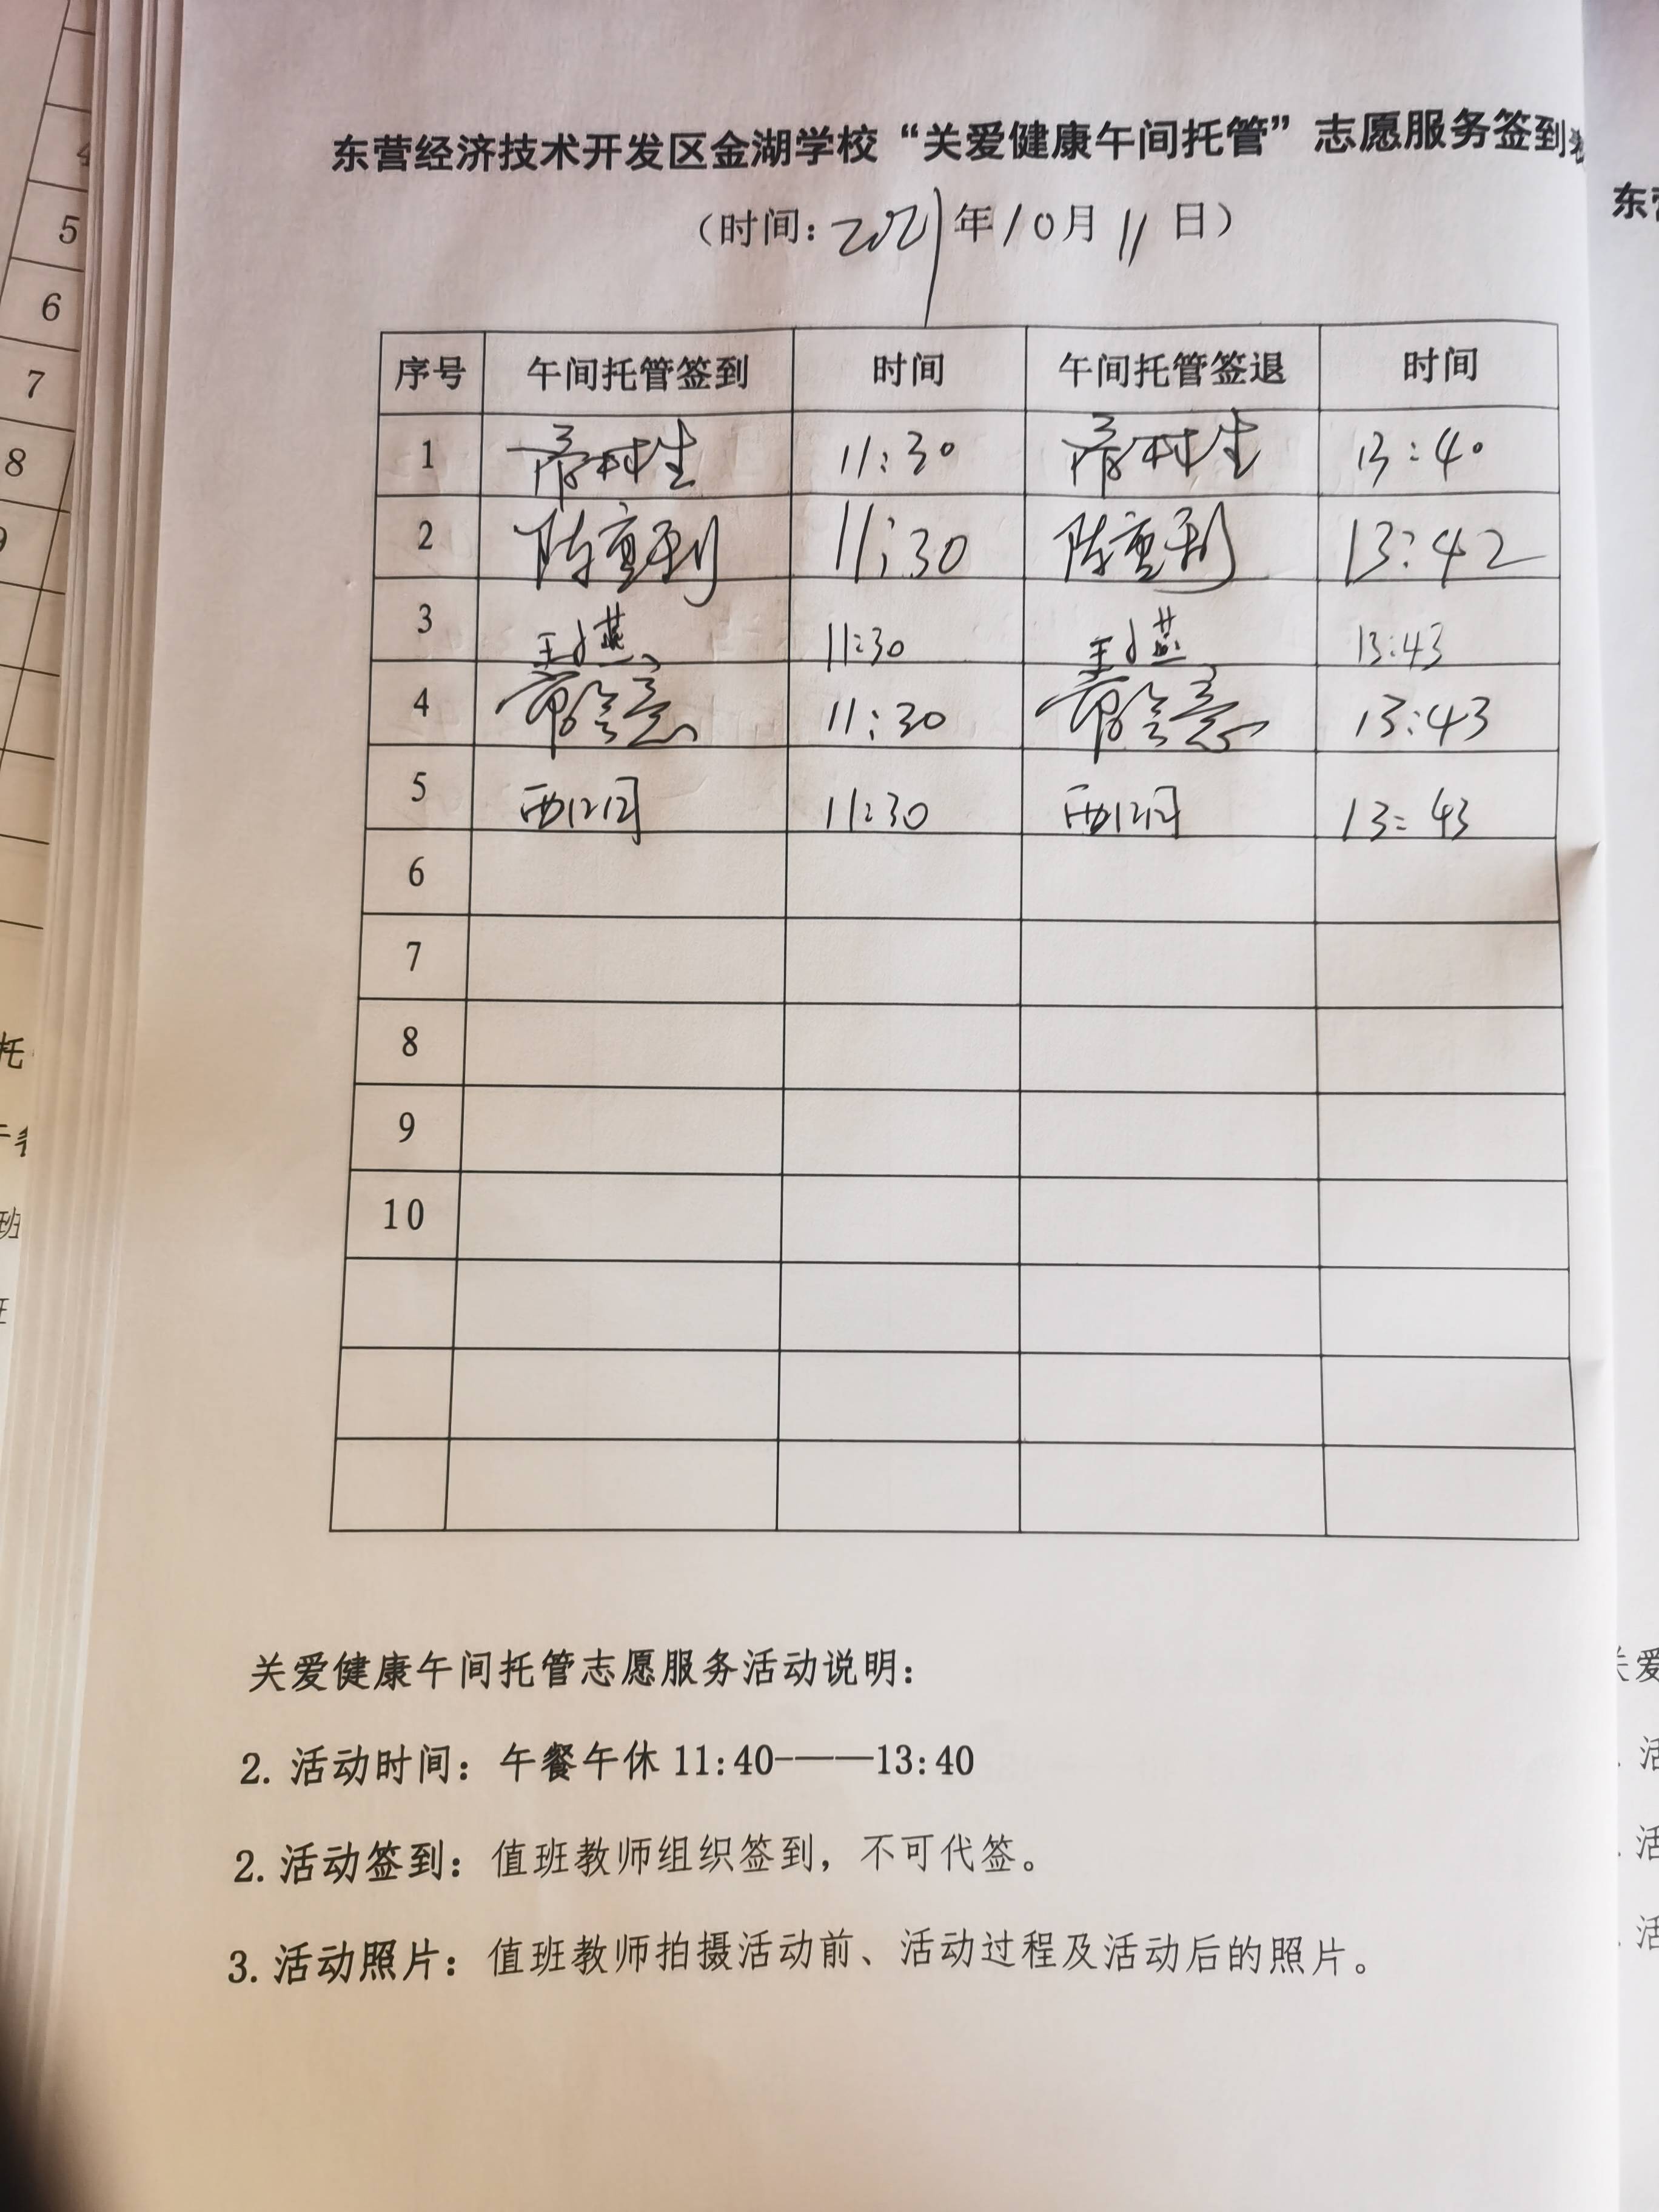 东营经济技术开发区金湖学校“关爱健康午间托管”志愿服务签到
（时间：2021年10月11日）
序号 午间托管签到 时间 午间托管签退 时间
1 11:30 13:40
2 陈重到 11:30 陈重到 13:42
3 王小燕 11:30 王小燕 13:43
4 11:30 13:43
5 11:30 13:43
6
7
8
9
10
关爱健康午间托管志愿服务活动说明：
2. 活动时间：午餐午休 11:40-——13:40
2. 活动签到：值班教师组织签到，不可代签。
3. 活动照片：值班教师拍摄活动前、活动过程及活动后的照片。
5
6
7
8
托
班
东
关爱
活
活
活